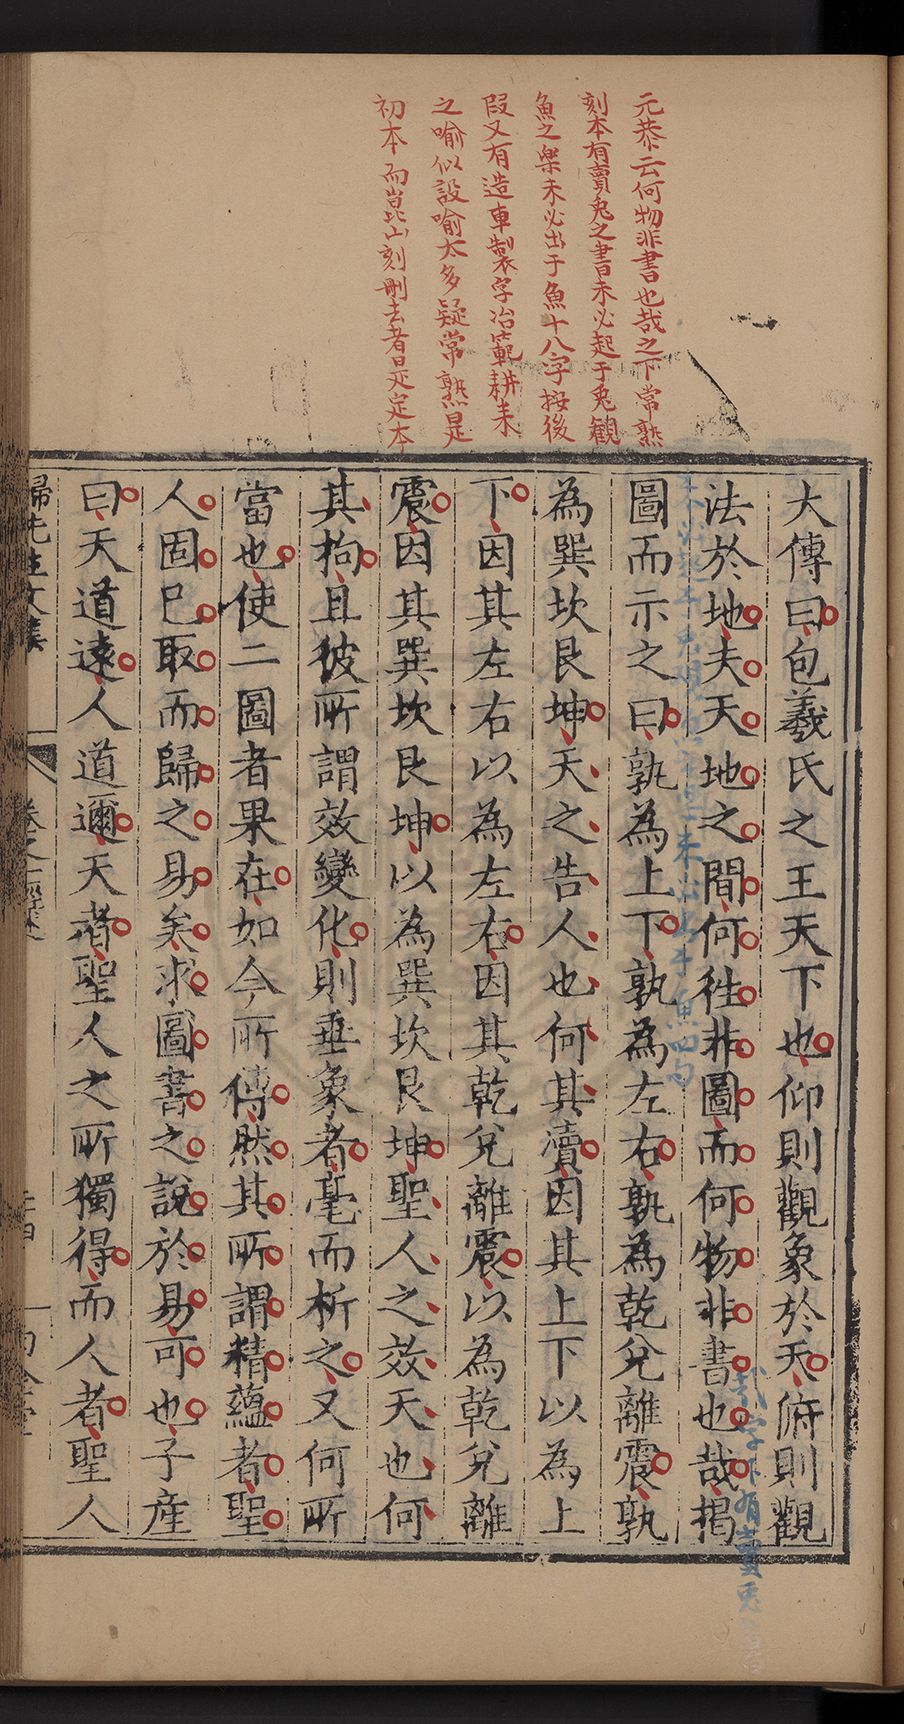 元恭云何物非書也哉之下常熟
刻本有賣兎之書未必起于兎觀
魚之樂未必出于魚十八字按後
叚又有造車製字冶範耕耒
之喻似設喻太多疑常熟是
初本而崑山刻刪去者是定本
大傳曰包羲氏之王天下也仰則觀象於天俯則觀
法於地夫天地之間何徃非圖而何物非書也哉揭
圖而示之曰孰為上下孰為左右孰為乾兌離震孰
為巽坎艮坤天之告人也何其瀆因其上下以為上
下因其左右以為左右因其乾兌離震以為乾兌離
震因其巽坎艮坤以為巽坎艮坤聖人之效天也何
其拘且彼所謂效變化則垂象者毫而析之又何所
當也使二圖者果在如今所傳然其所謂精蘊者聖
人固已取而歸之易矣求圖書之說於易可也子產
曰天道遠人道邇天者聖人之所獨得而人者聖人
歸先生文集
卷之一
哉字下有賣兎之書